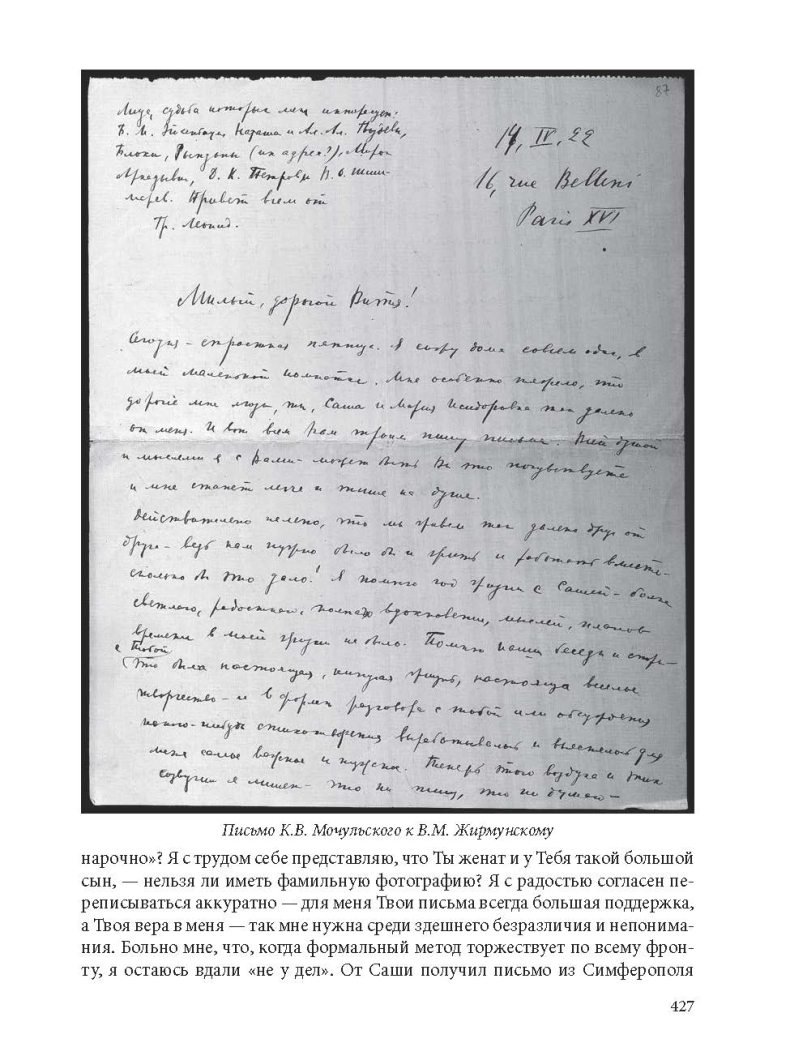 87
Лица, судьба которых меня интересует:
Б. М. Эйхенбаум, Наташа и Ал. Ал.
Блоки, Рындины (их адрес?), Мирон
Аркадьевич, Д. К. Петров, В. Ф. Шиш-
марев. Привет всем от
Гр. Леонид.
14, IV, 22
16, rue Bellini
Paris XVI
Милый, дорогой Витя!
Сегодня – страстная пятница. Я сижу дома совсем один, в
моей маленькой комнатке. Мне особенно тяжело, что
дорогие мне люди, ты, Саша и Мария Исидоровна так далеко
от меня. И вот всем Вам троим пишу письма. Всей душой
и мыслями я с Вами – может быть Вы это почувствуете
и мне станет легче и тише на душе.
Действительно нелепо, что мы живем так далеко друг от
друга – ведь нам нужно было бы и жить и работать вместе –
сколько бы это дало! Я помню год жизни с Сашей – более
светлого, радостного, полного вдохновения, мыслей, планов
времени в моей жизни не было. Помню наши беседы и споры
с Тобой
Это была настоящая, жизнь, настоящее
творчество – и в форме разговора с тобой или обсуждения
какого-нибудь стихотворения вырабатывалось и выяснялось для
меня самое важное и нужное. Теперь этого воздуха и этих
созвучий я лишен – что ни пишу, что ни думаю –
Письмо К.В. Мочульского к В.М. Жирмунскому
нарочно»? Я с трудом себе представляю, что Ты женат и у Тебя такой большой
сын, — нельзя ли иметь фамильную фотографию? Я с радостью согласен пе-
реписываться аккуратно — для меня Твои письма всегда большая поддержка,
а Твоя вера в меня — так мне нужна среди здешнего безразличия и непонима-
ния. Больно мне, что, когда формальный метод торжествует по всему фрон-
ту, я остаюсь вдали «не у дел». От Саши получил письмо из Симферополя
427